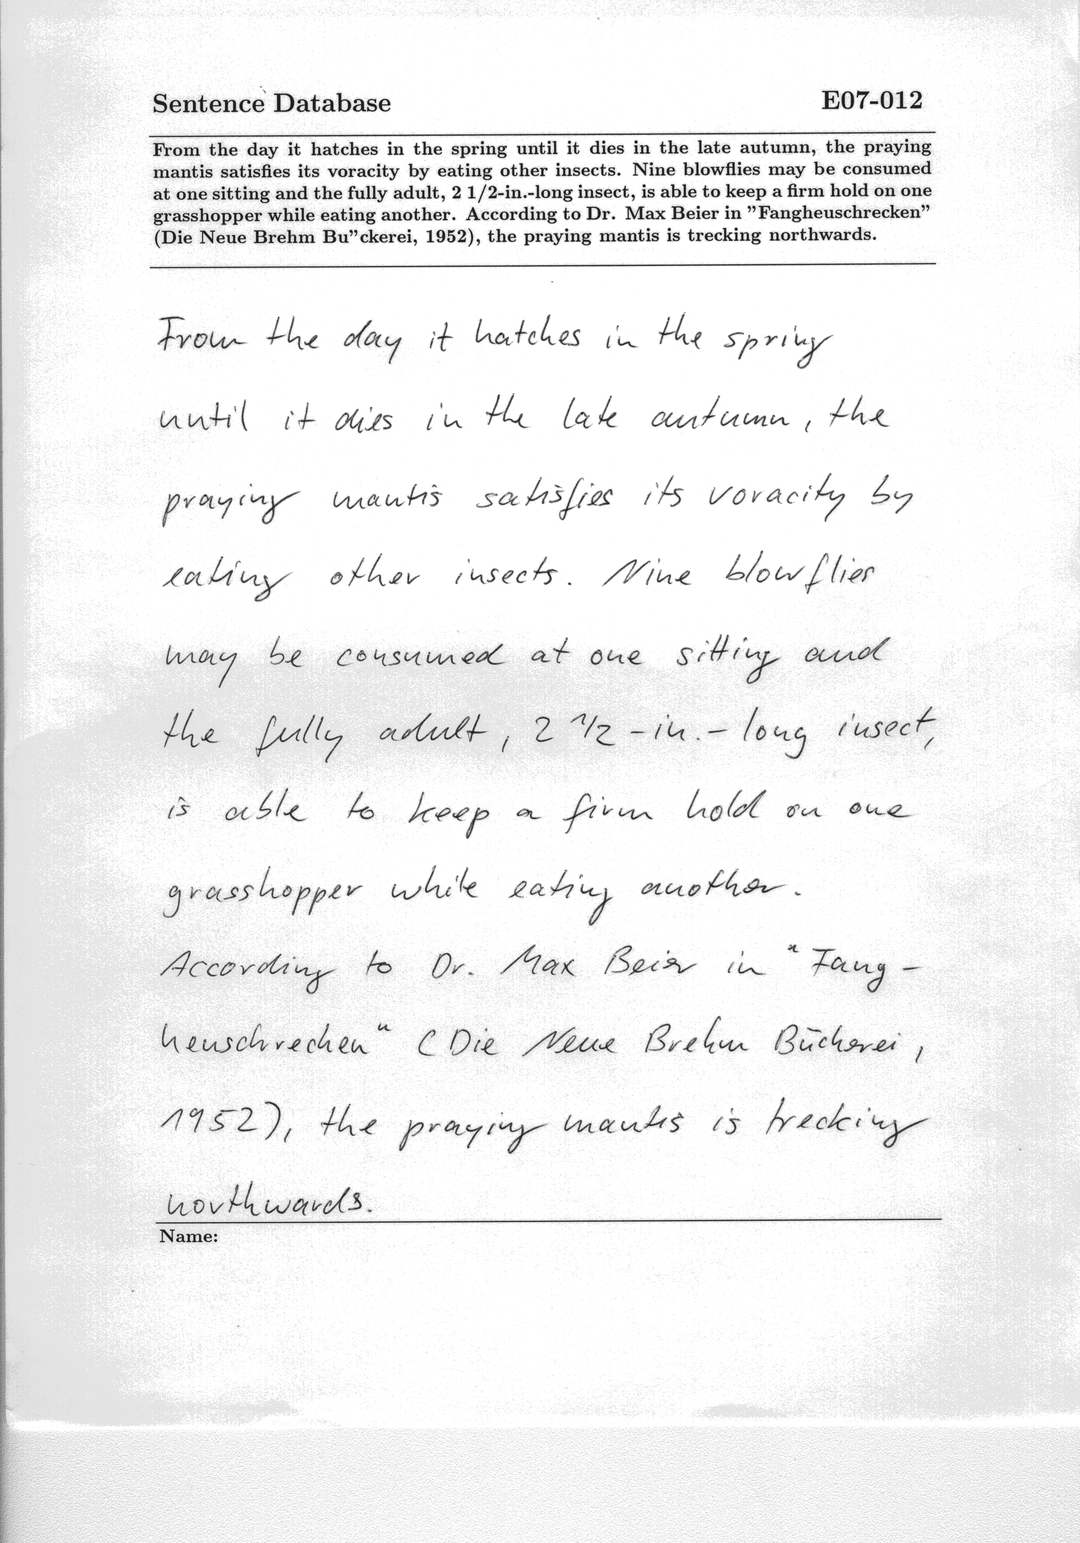 Sentence Database E07-012
From the day it hatches in the spring until it dies in the late autumn, the praying
mantis satisfies its voracity by eating other insects. Nine blowflies may be consumed
at one sitting and the fully adult, 2 1/2-in.-long insect, is able to keep a firm hold on one
grasshopper while eating another. According to Dr. Max Beier in ”Fangheuschrecken”
(Die Neue Brehm Bu”ckerei, 1952), the praying mantis is trecking northwards.
From the day it hatches in the spring
until it dies in the late autumn, the
praying mantis satisfies its voracity by
eating other insects. Nine blowflies
may be consumed at one sitting and
the fully adult, 2 1/2-in.-long insect,
is able to keep a firm hold on one
grasshopper while eating another.
According to Dr. Max Beier in "Fang-
heuschrecken" (Die Neue Brehm Bücherei,
1952), the praying mantis is trecking
northwards.
Name: